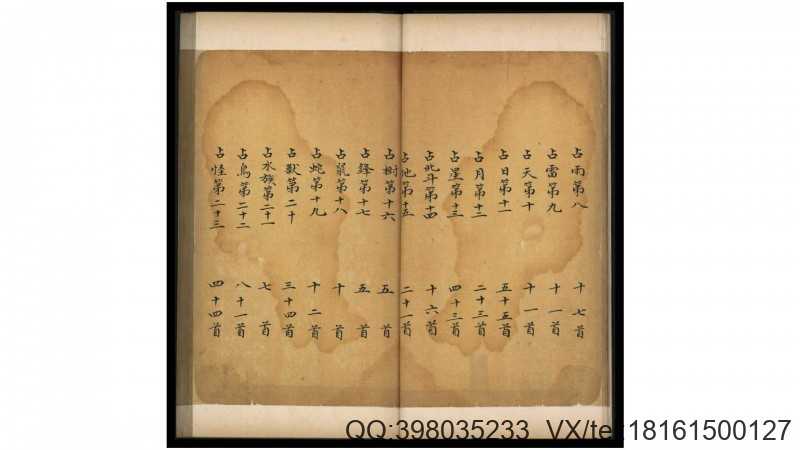 占雨第八 十七首
占雷第九 十一首
占天第十 十一首
占日第十一 五十五首
占月第十二 二十三首
占星第十三 四十三首
占北斗第十四 十六首
占地第十五 二十一首
占樹第十六 五首
占鋒第十七 五首
占鼠第十八 十首
占蛇第十九 十二首
占獸第二十 三十四首
占水族第二十一 七首
占鳥第二十二 八十一首
占怪第二十三 四十四首
QQ:398035233 VX/tel:18161500127